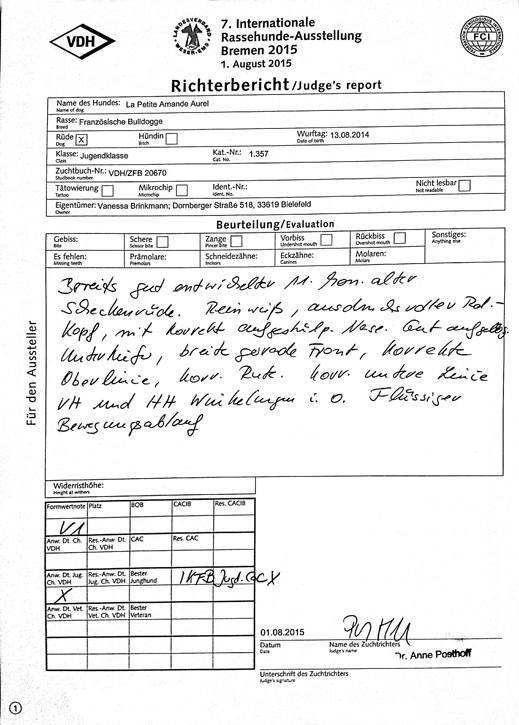 VDH
LANDESVERBAND WESER-EMS
FCI
7. Internationale
Rassehunde-Ausstellung
Bremen 2015
1. August 2015
Richterbericht/Judge's report
Name des Hundes: La Petite Amande Aurel
Name of dog
Rasse: Französische Bulldogge
Breed
Rüde X Hündin Wurftag: 13.08.2014
Dog Bitch Date of birth
Klasse: Jugendklasse Kat.-Nr.: 1.357
Class Cat. No.
Zuchtbuch-Nr.: VDH/ZFB 20670
Studbook number
Tätowierung Mikrochip Ident.-Nr.: Nicht lesbar
Tattoo Microchip Ident. No. Not readable
Eigentümer: Vanessa Brinkmann; Dornberger Straße 518, 33619 Bielefeld
Owner
Beurteilung/Evaluation
Gebiss: Schere Zange Vorbiss Rückbiss Sonstiges:
Bite Scissor bite Pincer bite Undershot mouth Overshot mouth Anything else
Es fehlen: Prämolare: Schneidezähne: Eckzähne: Molaren:
Missing teeth Premolars Incisors Canines Molars
Bereits gut entwickelter 11. Mon. alter
Scheckenrüde. Rein weiß, ausdrucksvoller
Kopf, mit korrekt Nase. Gut
Unterkiefer, breite gerade Front, korrekte
Oberlinie, korr. Rute. korr. untere Linie
VH und HH Winkelungen i. O. Flüssiger
Bewegungsablauf
Für den Aussteller
Widerristhöhe:
Height at withers
Formwertnote Platz BOB CACIB Res. CACIB
V1
Anw. Dt. Ch. VDH Res.-Anw. Dt. Ch. VDH CAC Res. CAC
Anw. Dt. Jug. Ch. VDH Res.-Anw. Dt. Jug. Ch. VDH Bester Junghund IKFB Jugd. CAC X
X
Anw. Dt. Vet. Ch. VDH Res.-Anw. Dt. Vet. Ch. VDH Bester Veteran
01.08.2015
Datum Name des Zuchtrichters
Date Judge's name
Dr. Anne Posthoff
Unterschrift des Zuchtrichters
Judge's signature
1